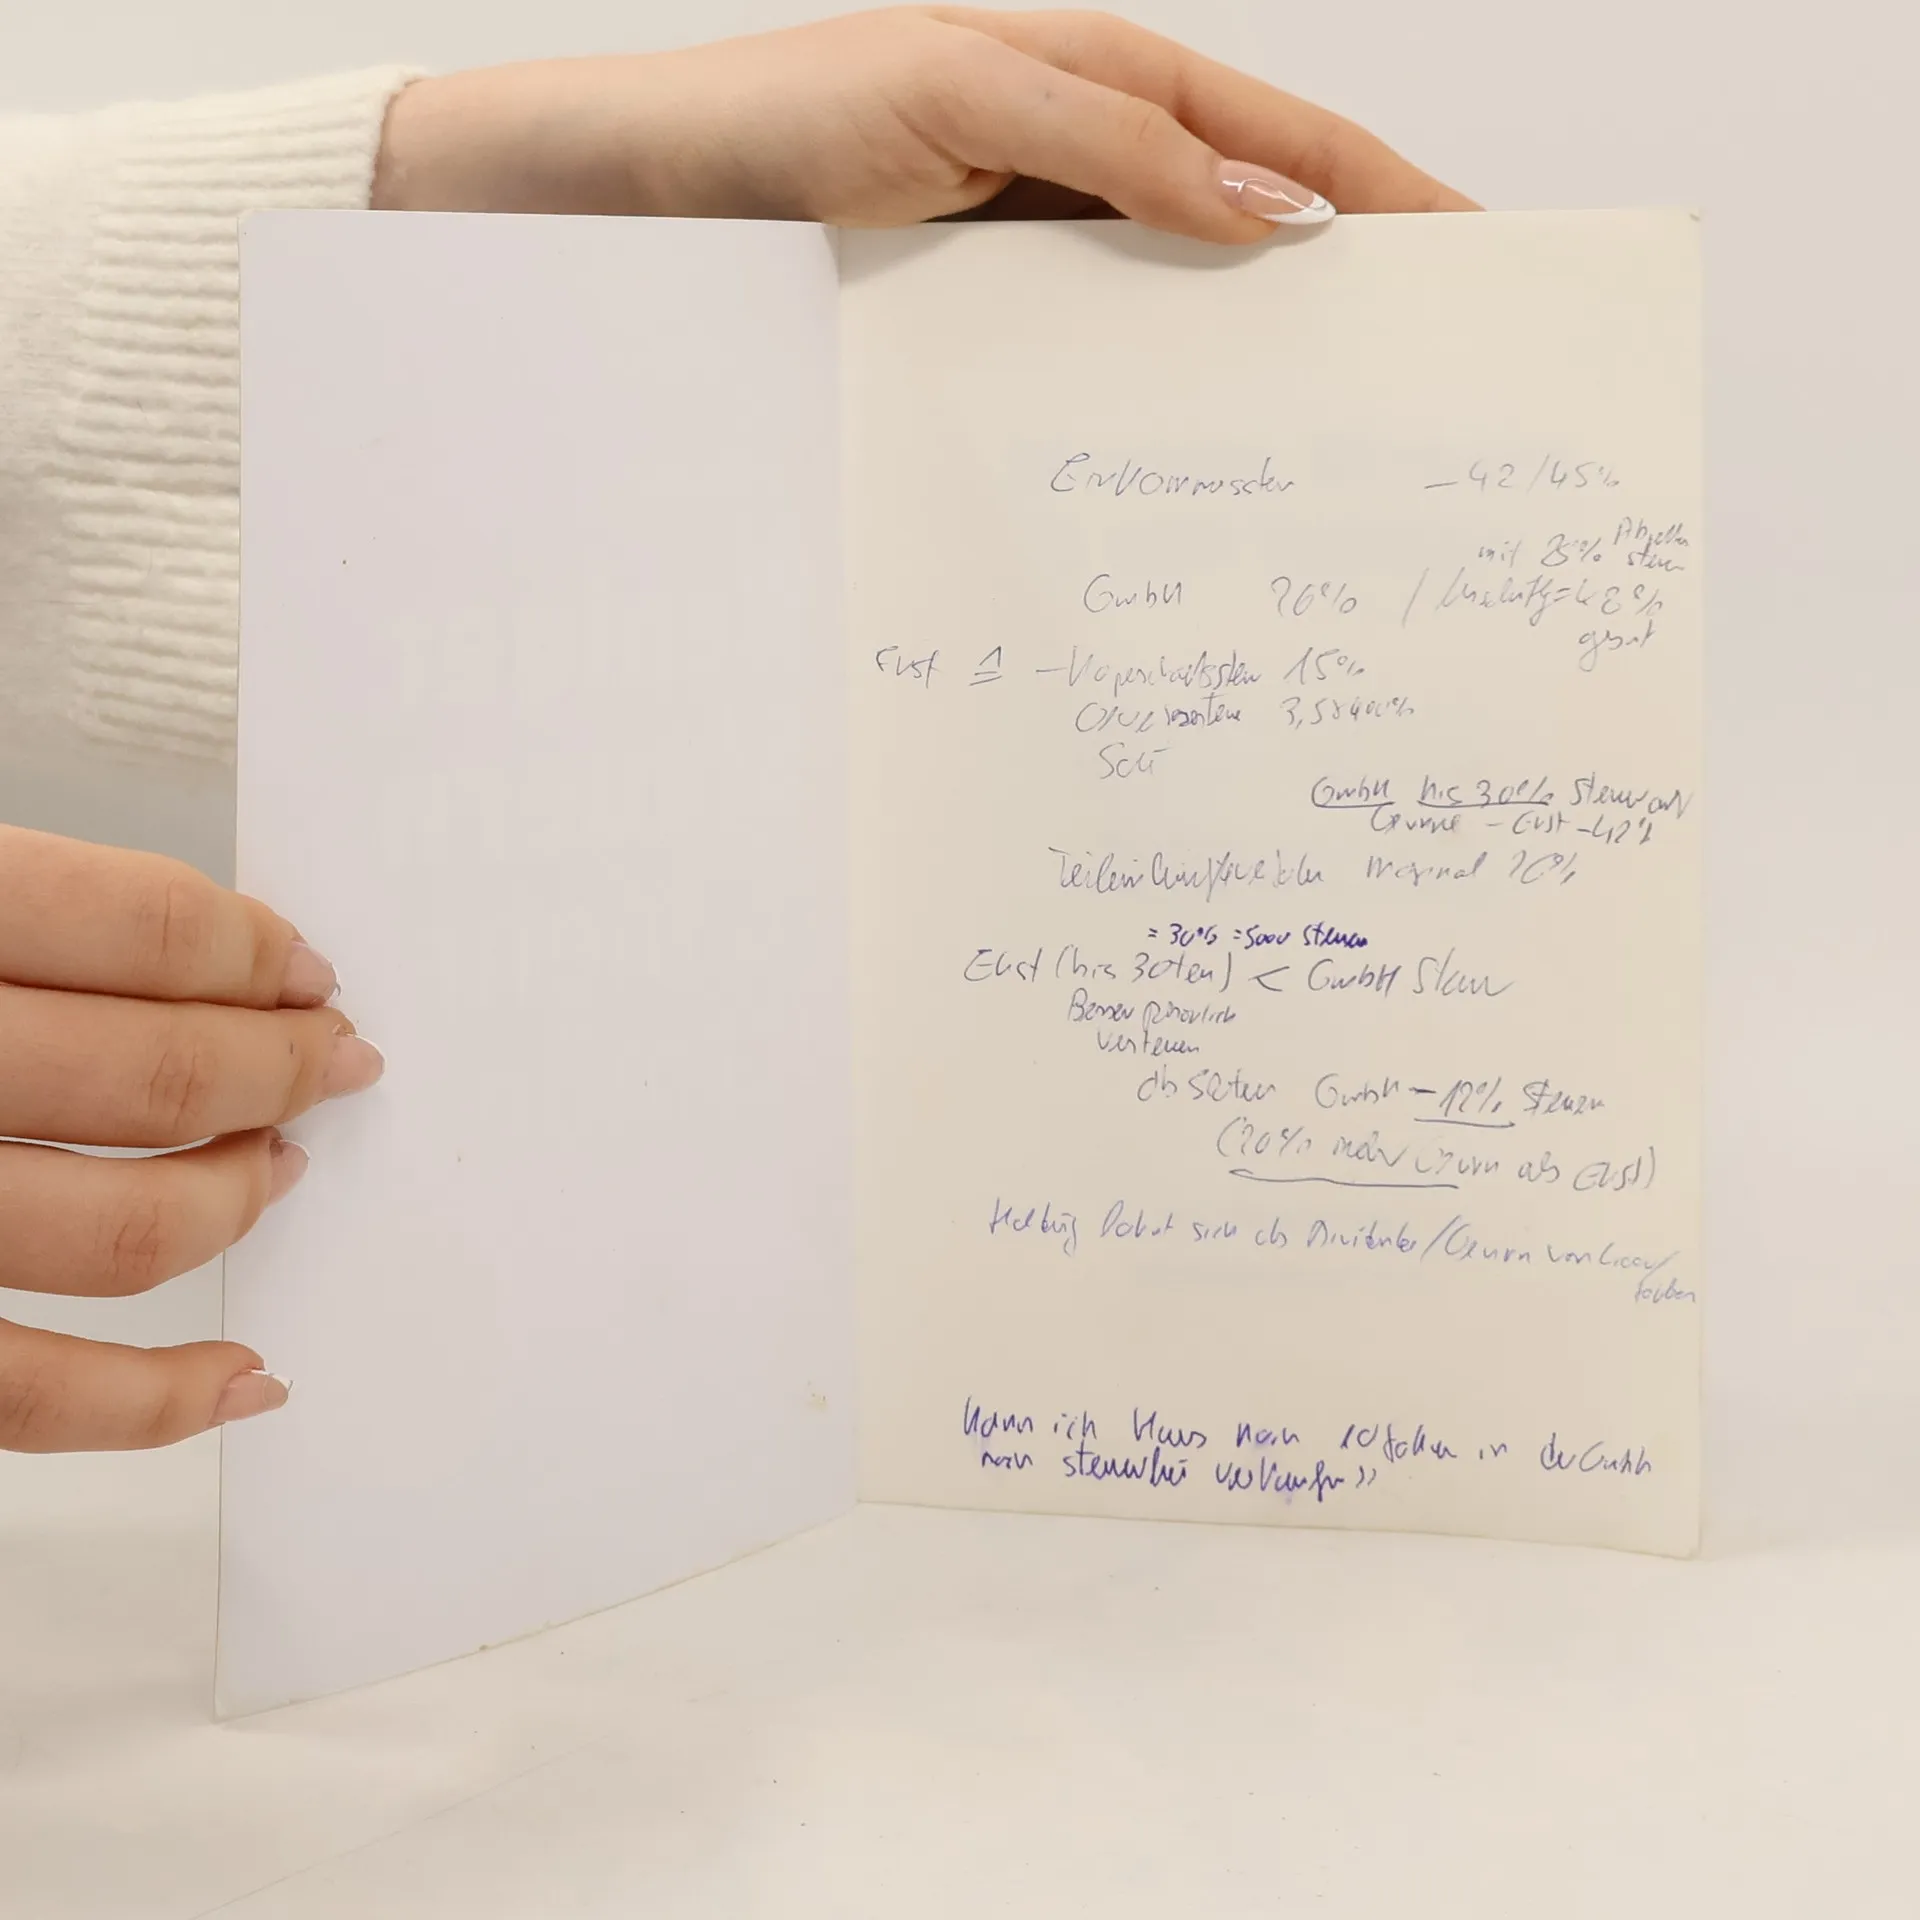 Einkommensteuer – 42/45%
mit 25% Abgeltungssteuer
GmbH 26% / = 48%
gesamt
EKSt ≙ – Körperschaftssteuer 15%
3,5 × 400%
Soli
GmbH bis 30% Steuern auf
Gewinne – EKSt – 42%
Teileinkünfteverfahren maximal
= 30% = 5000 Steuern
EKSt (bis 30ten) < GmbH Steuer
Besser persönlich
versteuern
GmbH – 12% Steuern
(20% mehr Gewinn als EKSt)
Holding sich als Dividende/Gewinn von
Kann ich Haus nach 10 Jahren in der GmbH
steuerfrei verkaufen